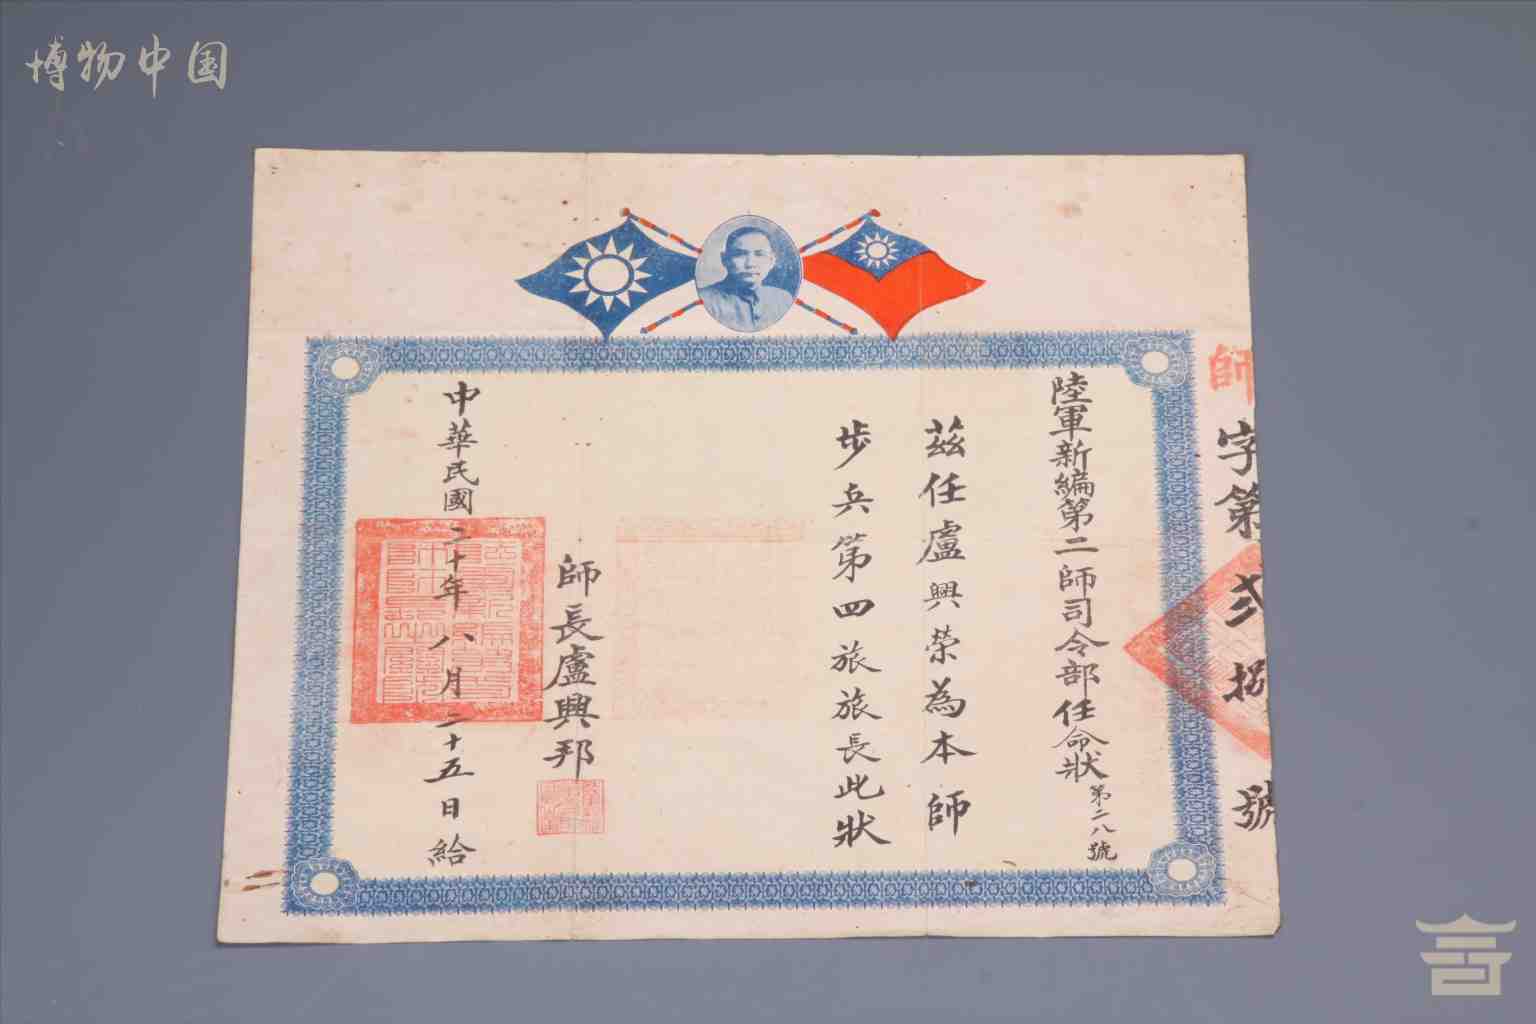 博物中国
師
字第
號
陸軍新編第二師司令部任命狀第二八號
茲任盧興荣為本師
步兵第四旅旅長此狀
師長盧興邦
中華民國二十年八月二十五日給